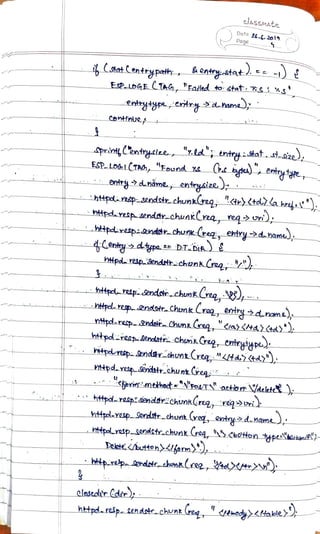 classmate
Date 26.6.2019
Page 4
if (stat (entrypath, &entry_stat) == -1) {
ESP_LOGE (TAG, "Failed to stat %s : %s",
entrytype, entry → d_name);
continue;
}
sprintf (entrysize, "%ld", entry_stat.st_size);
ESP_LOGI (TAG, "Found %s (%s bytes)", entrytype,
entry → d_name, entrysize);
httpd_resp_sendstr_chunk (req, "<tr><td><a href=\"");
httpd_resp_sendstr_chunk (req, req → uri);
httpd_resp_sendstr_chunk (req, entry → d_name);
if (entry → d_type == DT_DIR) {
httpd_resp_sendstr_chunk (req, "/");
}
httpd_resp_sendstr_chunk (req,
httpd_resp_sendstr_chunk (req, entry → d_name);
httpd_resp_sendstr_chunk (req, "</a></td><td>");
httpd_resp_sendstr_chunk (req, entrytype);
httpd_resp_sendstr_chunk (req, "</td><td>");
httpd_resp_sendstr_chunk (req,
"<form method=\"post\" action=\"/delete
httpd_resp_sendstr_chunk (req, req → uri);
httpd_resp_sendstr_chunk (req, entry → d_name);
httpd_resp_sendstr_chunk (req, "\"><button type=
Delete </button></form>");
httpd_resp_sendstr_chunk (req,
}
closedir (dir);
httpd_resp_sendstr_chunk (req, "</tbody></table>");